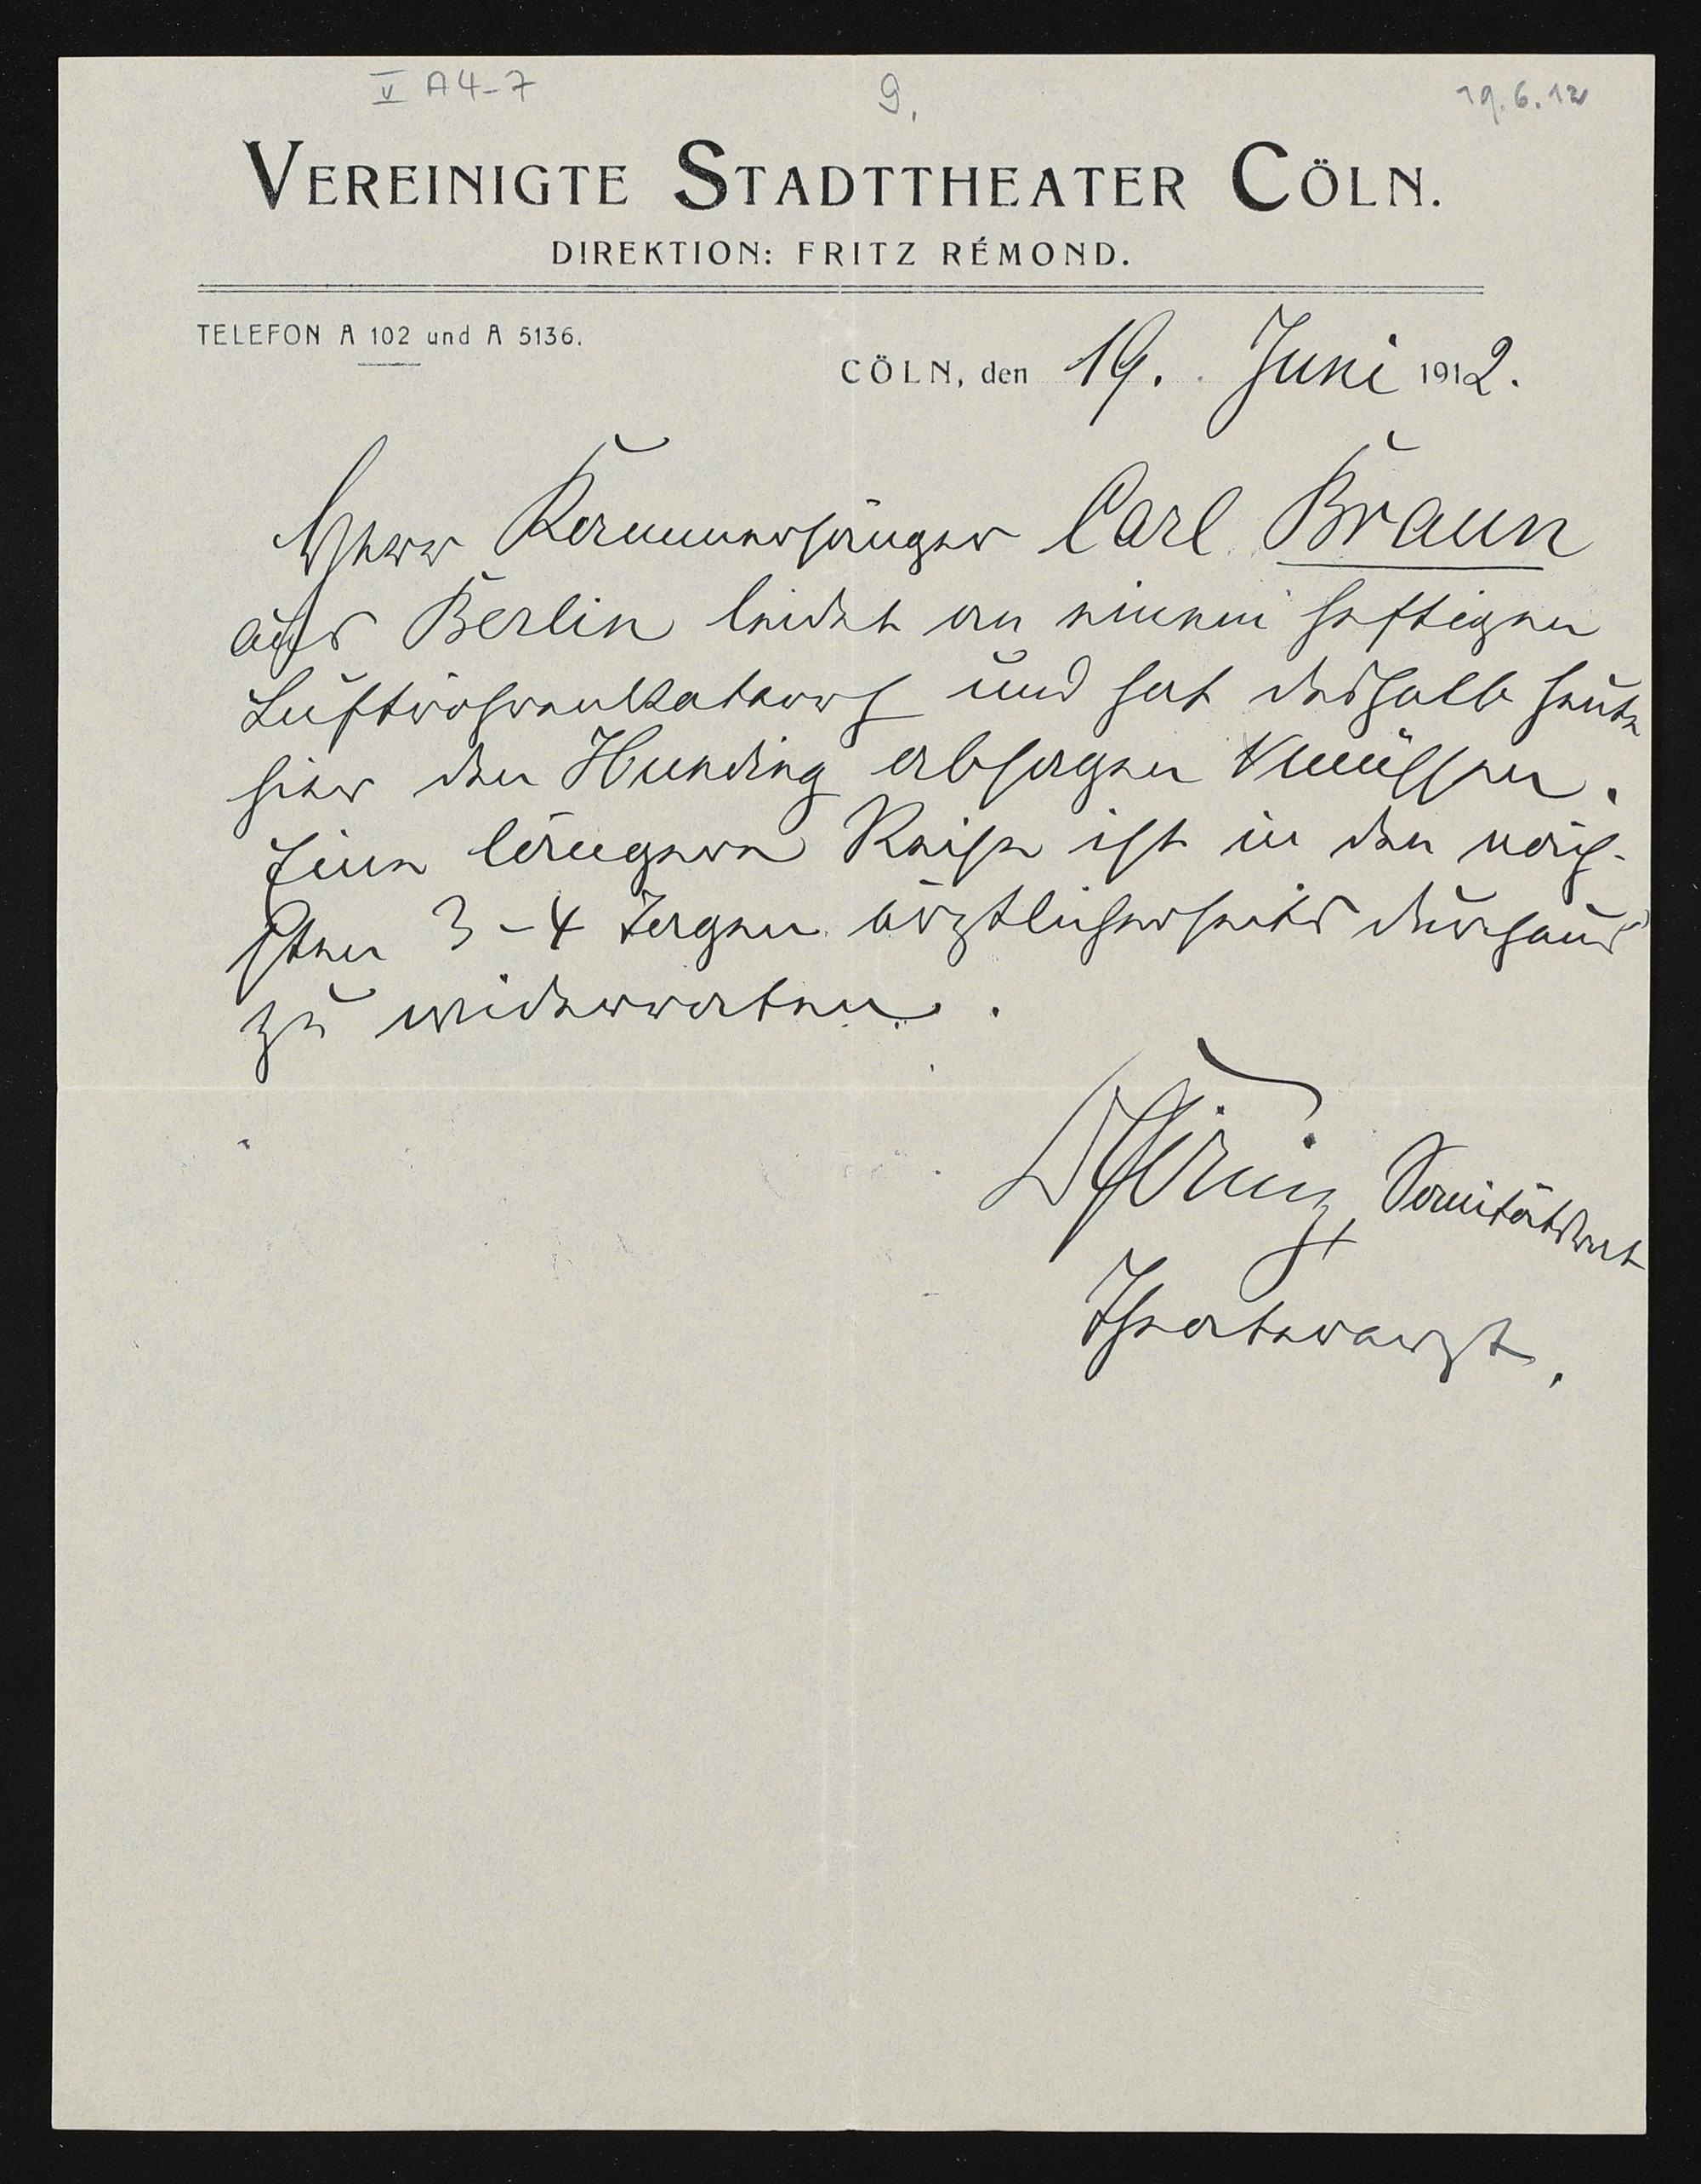 V A4-7
9.
19.6.12
VEREINIGTE STADTTHEATER CÖLN.
DIREKTION: FRITZ RÉMOND.
TELEFON A 102 und A 5136.
CÖLN, den 19. Juni 1912.
Herr Kammersänger Carl Braun
aus Berlin leidet an einem heftigen
Luftröhrenkatarrh und hat deshalb heute
hier den Hunding absagen müssen.
Eine längere Reise ist in den näch-
sten 3-4 Tagen ärztlicherseits durchaus
zu widerraten.
Sanitätsrat
Theaterarzt.